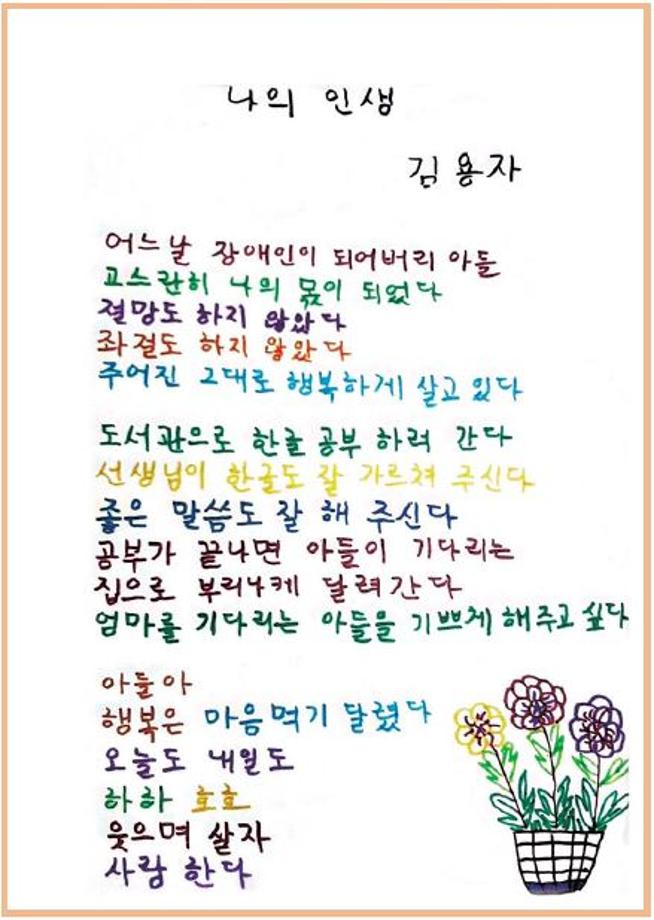 나의 인생
김용자
어느날 장애인이 되어버리 아들
고스란히 나의 몫이 되었다
절망도 하지 않았다
좌절도 하지 않았다
주어진 그대로 행복하게 살고 있다
도서관으로 한글 공부 하러 간다
선생님이 한글도 잘 가르쳐 주신다
좋은 말씀도 잘 해 주신다
공부가 끝나면 아들이 기다리는
집으로 부리나케 달려간다
엄마를 기다리는 아들을 기쁘체 해주고 싶다
아들아
행복은 마음먹기 달렸다
오늘도 내일도
하하 호호
웃으며 살자
사랑 한다